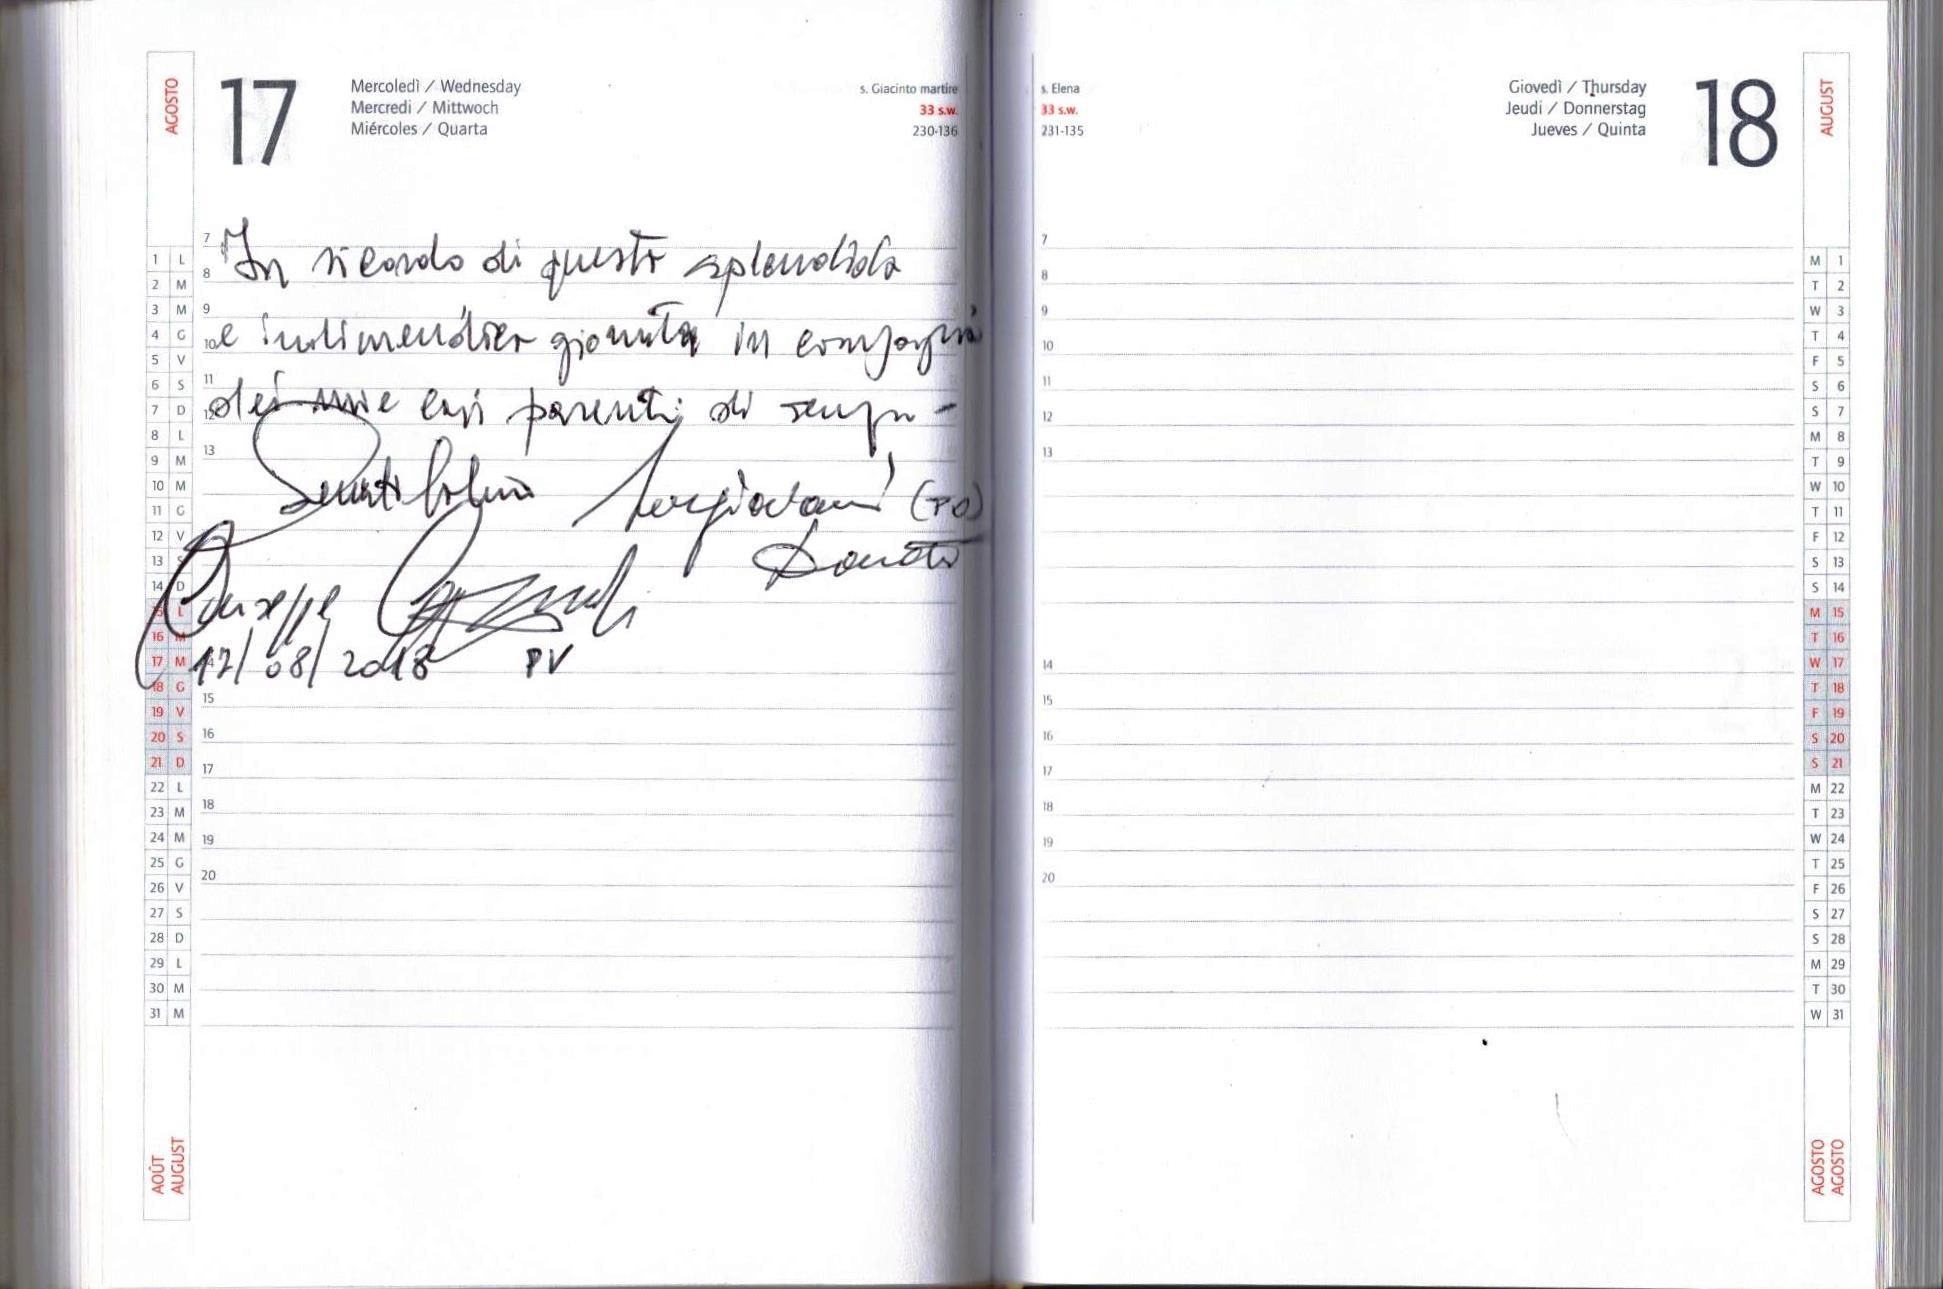 AGOSTO
17
Mercoledì / Wednesday
Mercredi / Mittwoch
Miércoles / Quarta
s. Giacinto martire
33 s.w.
230-136
7
8
9
10
11
12
13
In ricordo di questa splendida
e indimenticabile giornata in compagnia
dei miei cari parenti di sempre -
(PO)
Donato
Giuseppe
17/08/2018 PV
15
16
17
18
19
20
1 L
2 M
3 M
4 G
5 V
6 S
7 D
8 L
9 M
10 M
11 G
12 V
13 S
14 D
15 L
16 M
17 M
18 G
19 V
20 S
21 D
22 L
23 M
24 M
25 G
26 V
27 S
28 D
29 L
30 M
31 M
AOÛT
AUGUST
s. Elena
33 s.w.
231-135
Giovedì / Thursday
Jeudi / Donnerstag
Jueves / Quinta
18
AUGUST
7
8
9
10
11
12
13
14
15
16
17
18
19
20
M 1
T 2
W 3
T 4
F 5
S 6
S 7
M 8
T 9
W 10
T 11
F 12
S 13
S 14
M 15
T 16
W 17
T 18
F 19
S 20
S 21
M 22
T 23
W 24
T 25
F 26
S 27
S 28
M 29
T 30
W 31
AGOSTO
AGOSTO